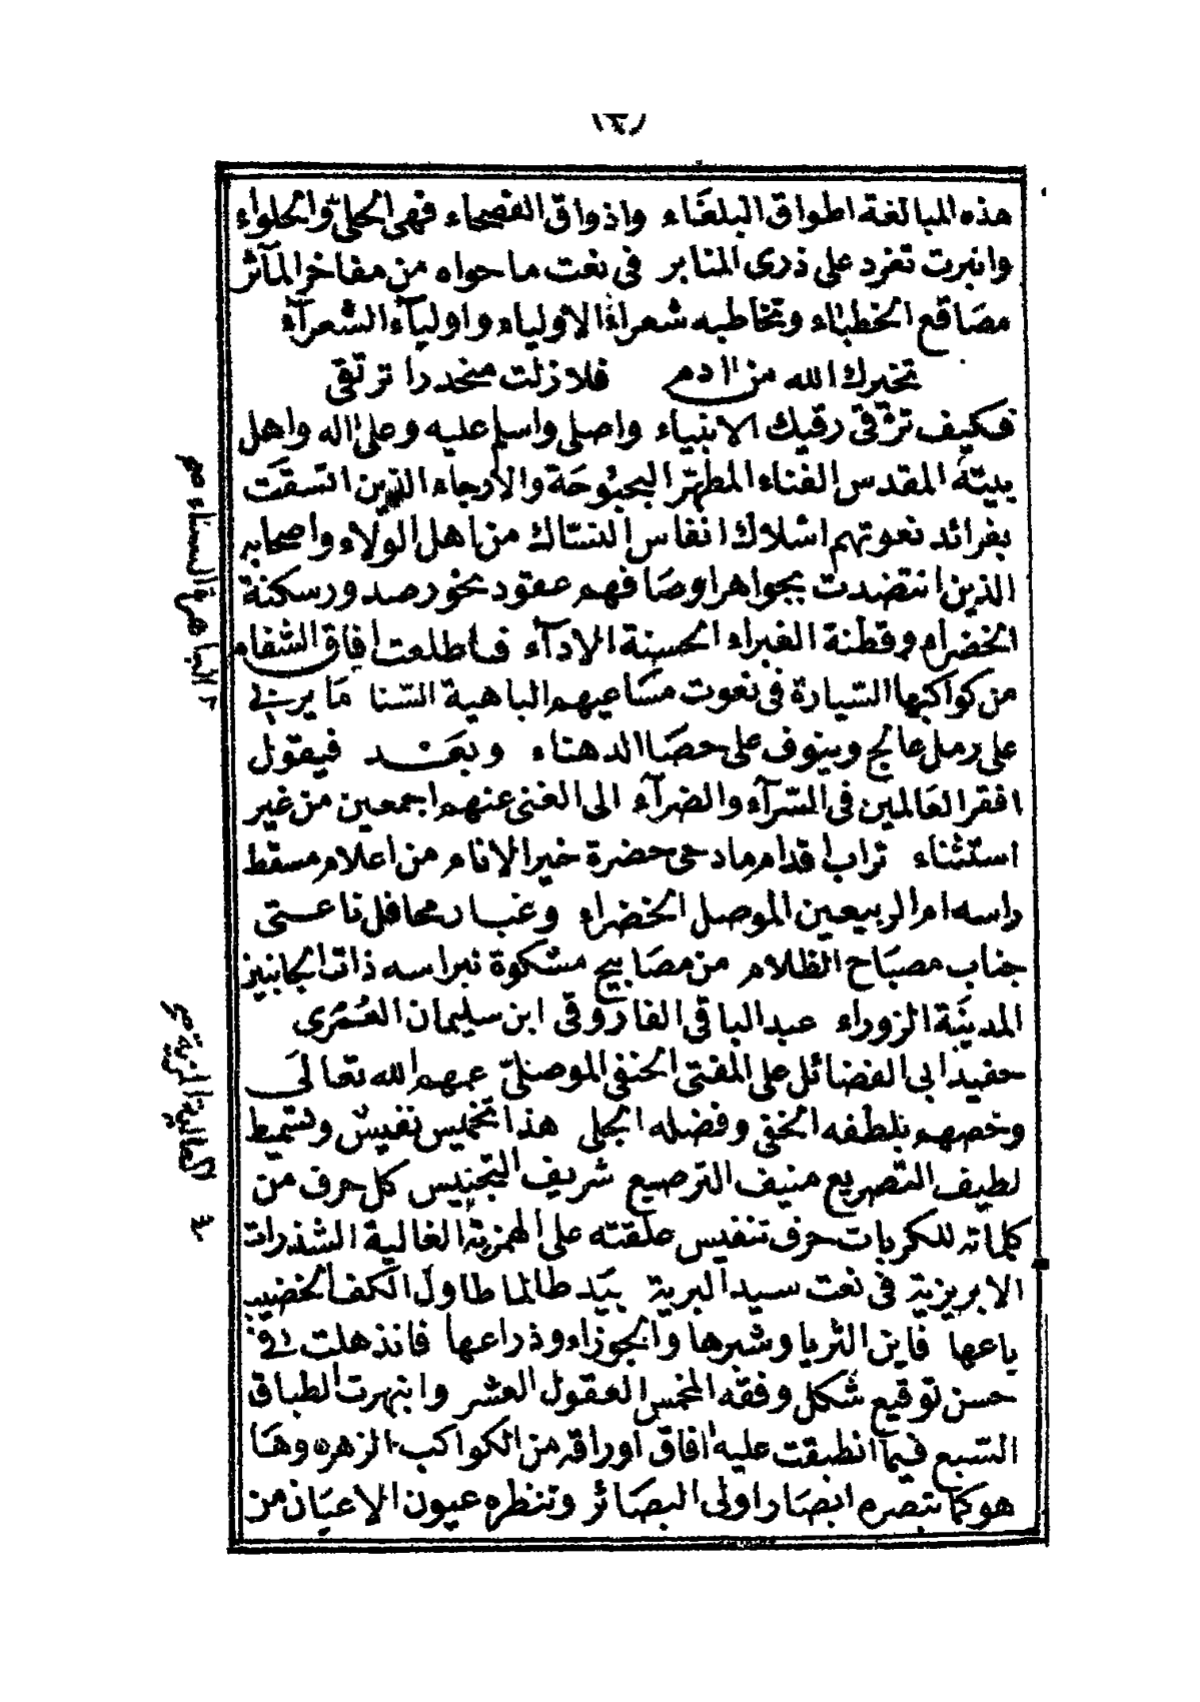 (٣)
هذه المبالغة اطواق البلغاء واذواق الفصحاء فهى الحلىّ والحلواء
وانبرت تغرد على ذرى المنابر فى نعت ما حواه من مفاخر المآثر
مصاقع الخطباء وتخاطبه شعراء الاولياء واولياء الشعرآء
تخيرك الله من اادم فلا زلت منحدرا ترتقى
فكيف ترقى رقيك الانبياء واصلى واسلم عليه وعلى اله واهل
بيته المقدس الفناء المطهر البحبوحة والارجاء الذين اتسقت
بفرائد نعوتهم اسلاك انفاس النساك من اهل الولاء واصحابه
الذين انتضدت بجواهر اوصافهم عقود نحور صدور سكنة
الخضراء وقطنة الغبراء الحسنة الادآء فما طلعت افاق الشفاه
من كواكبها السيارة فى نعوت مساعيهم الباهية السنا ما يربى
على رمل عالج وينوف على حصا الدهناء وبعد فيقول
افقر العالمين فى السرآء والضرآء الى الغنى عنهم اجمعين من غير
استثناء تراب اقدام مادحى حضرة خير الانام من اعلام مسقط
راسه ام الربيعين الموصل الخضراء وغبار محافل ناعتى
جناب مصباح الظلام من مصابيح مشكوة نبراسه ذات الجانبين
المدينة الزوراء عبد الباقى الفاروقى ابن سليمان العمرى
حفيد ابى الفضائل على المفتى الحنفى الموصلىّ عمهم الله تعالى
وخصهم بلطفه الخفى وفضله الجلى هذا تخميس نفيس وتسميط
لطيف التصريع منيف الترصيع شريف التجنيس كل حرف من
كلماته للكربات حرف تنفيس علقته على الهمزية الغالية الشذرات
الابريزية فى نعت سيد البرية بيد طالما طاول الكف الخضيب
باعها فاين الثريا وشبرها والجوزاء وذراعها فانذهلت فى
حسن توقيع شكل وفقه المخمس العقول العشر وانبهرت الطباق
السبع فيما انطبقت عليه افاق اوراقه من الكواكب الزهره وها
هو كما تبصره ابصار اولى البصائر وتنظره عيون الاعيان من
٢ الباهرة السناء صح
٤ العالية المزية صح